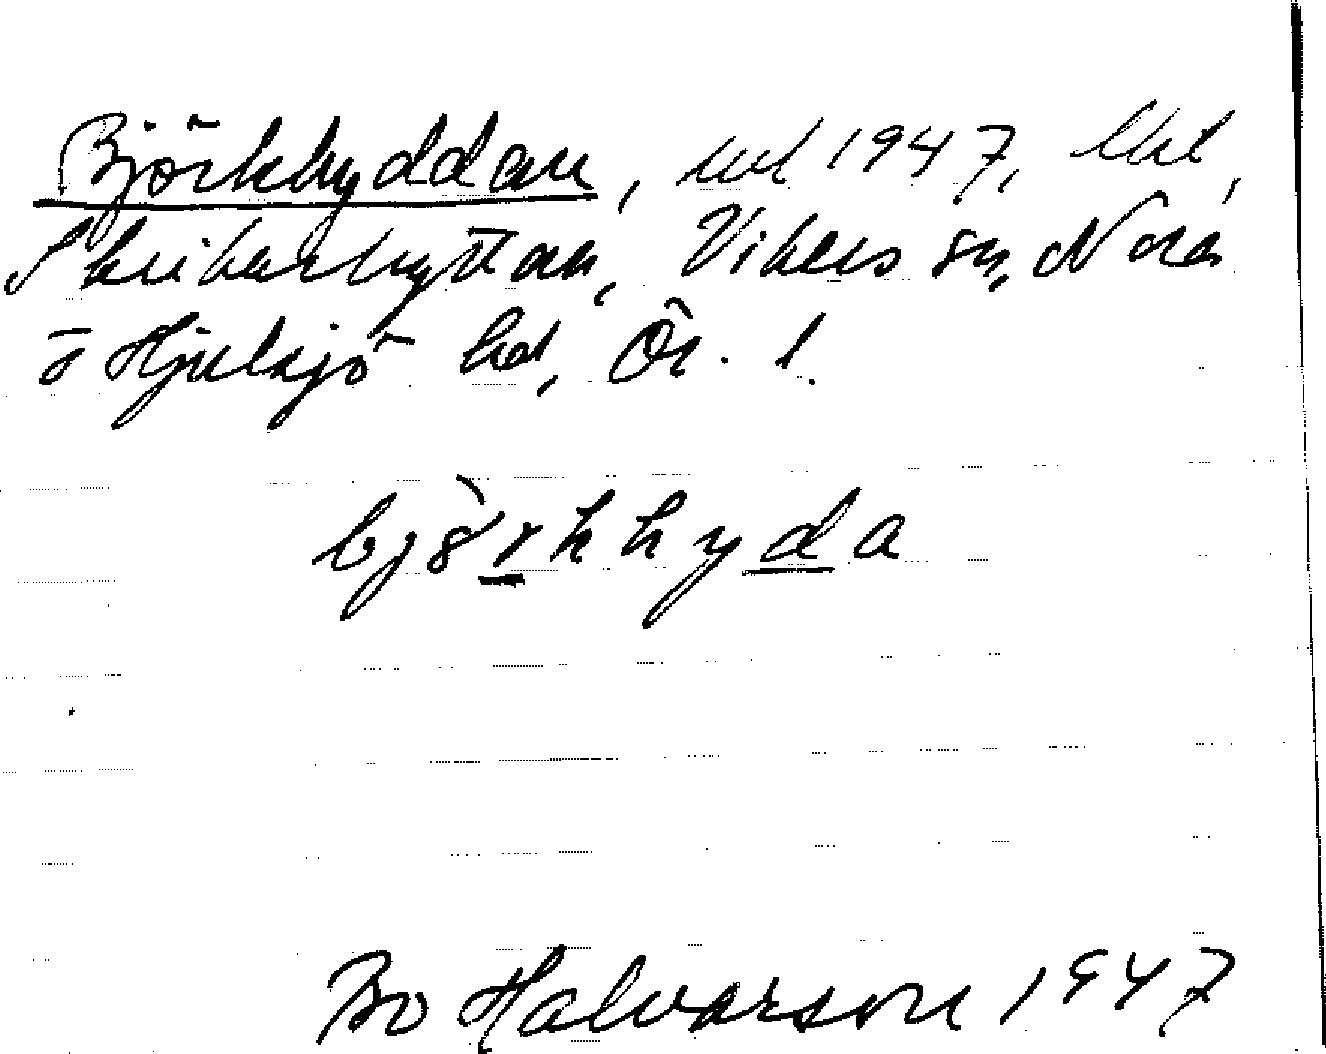 Björkhyddan, utl 1947,
Skrikarhyttan, Vikers sn, Nora
o Hjulsjö hd, Ör. l.
björkhyda
Bo Halvarson 1947